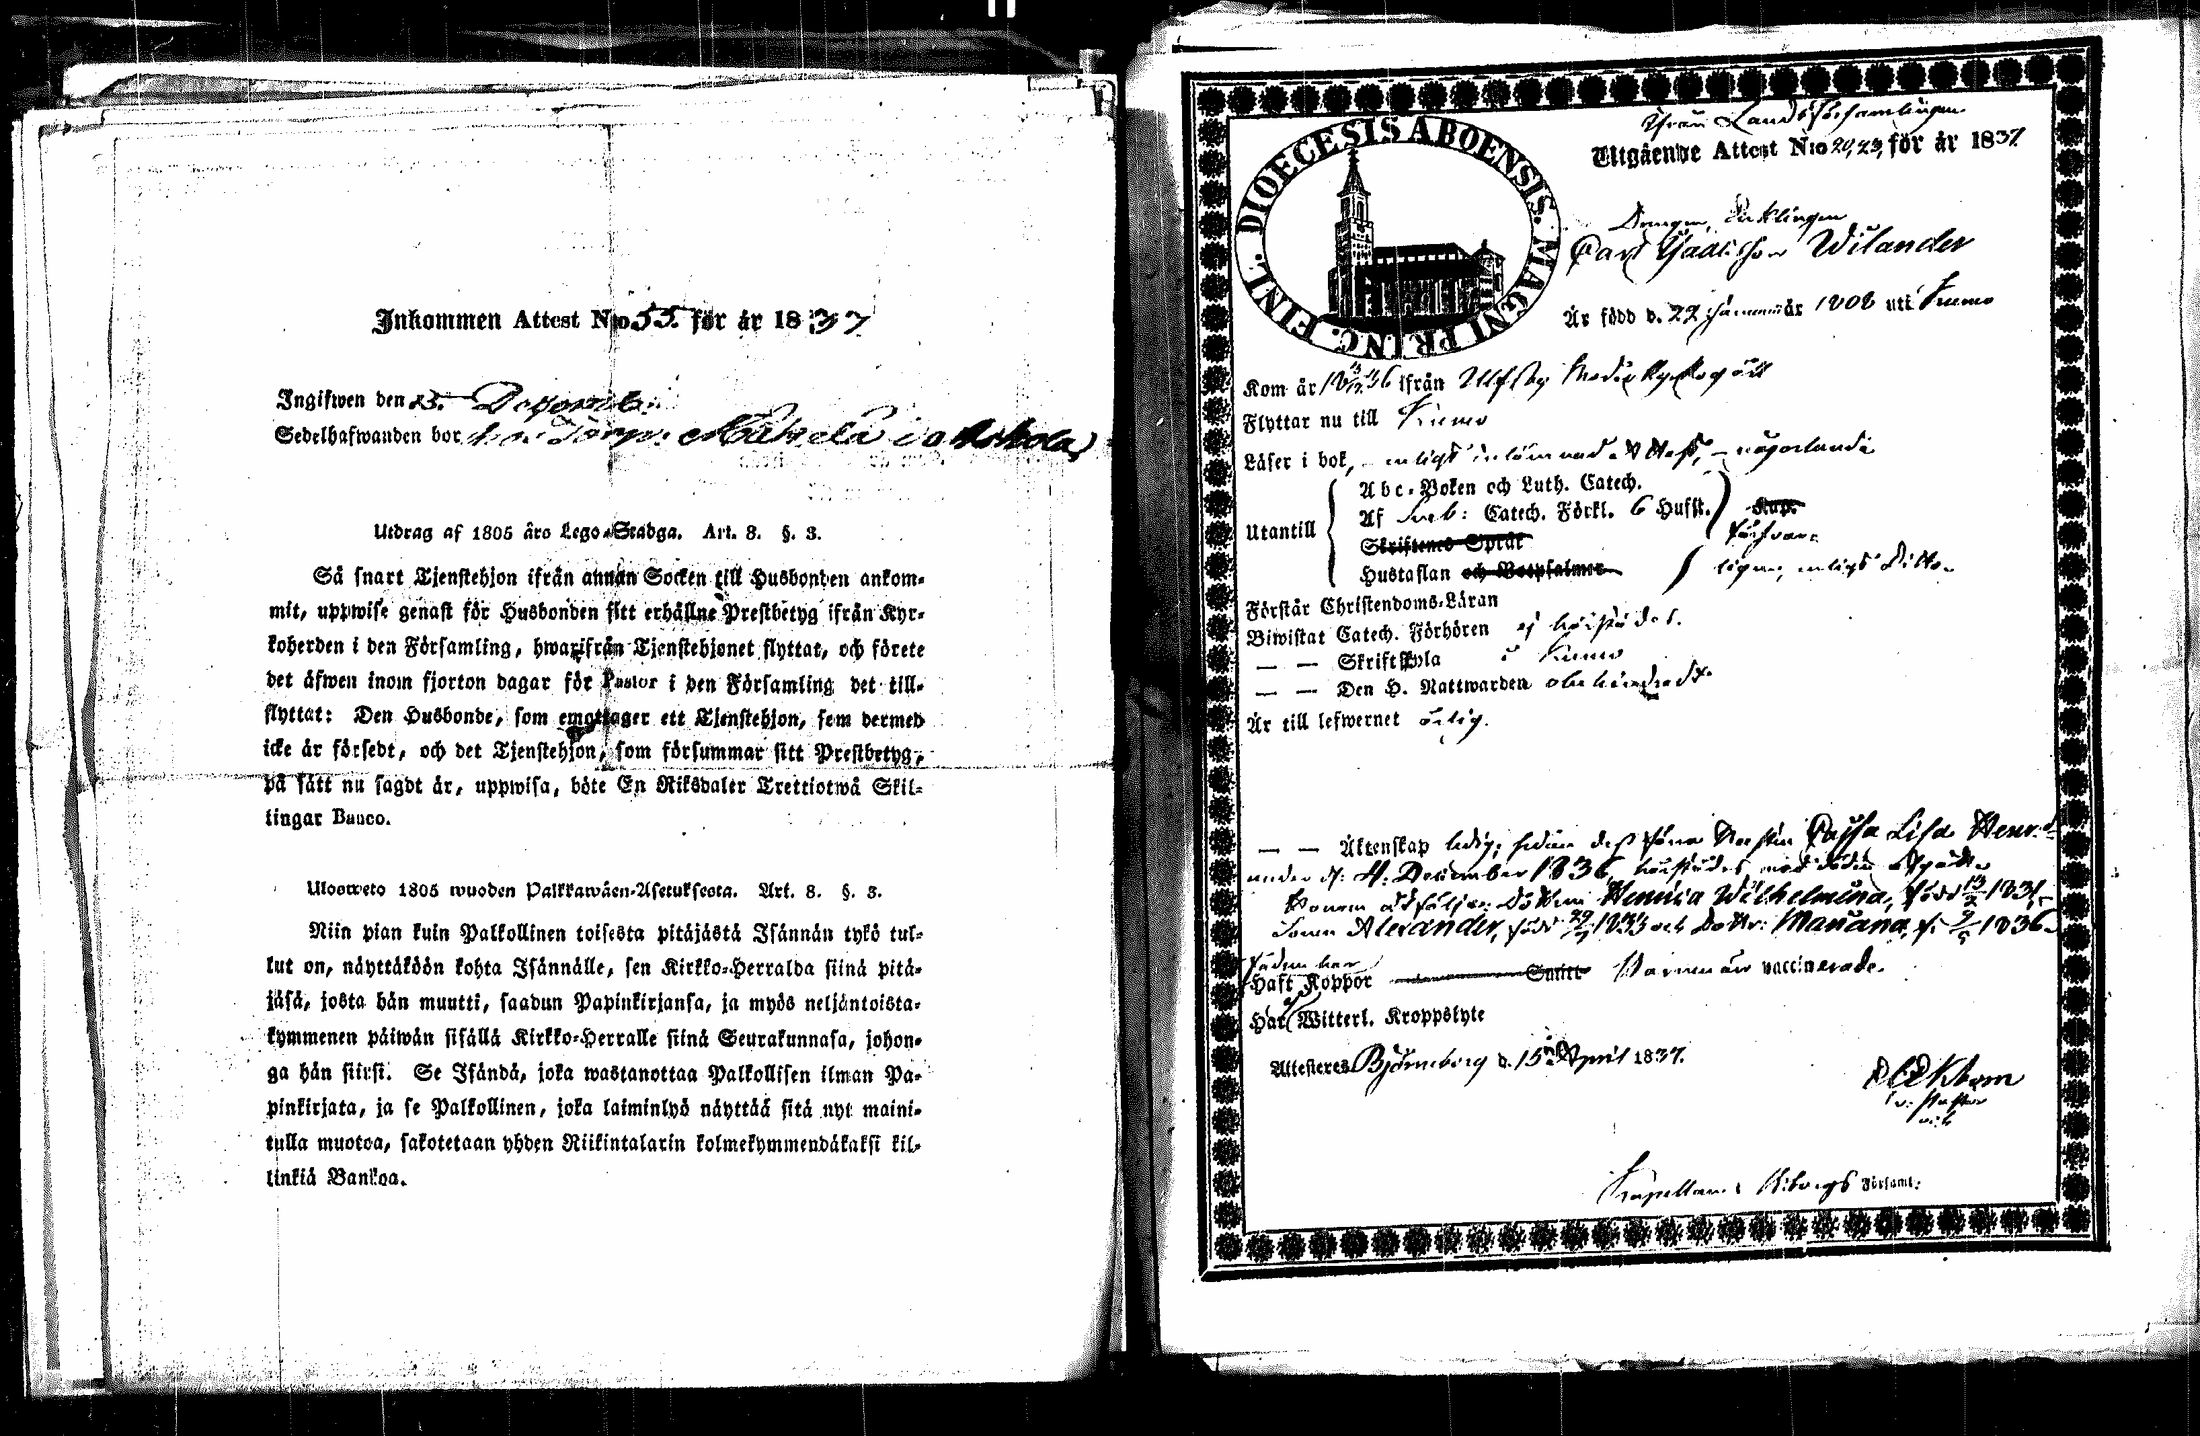 Inkommen Attest N:o 55. för år 1837
Ingifwen den 23. Decemb:
Sedelhafwanden bor
Utdrag af 1805 års Lego-Stadga. Art. 8. §. 3.
Så snart Tjenstehjon ifrån annan Socken till Husbonden ankom-
mit, uppwise genast för Husbonden sitt erhållne Prestbetyg ifrån Kyr-
koherden i den Församling, hwarifrån Tjenstehjonet flyttat, och förete
det äfwen inom fjorton dagar för Pastor i den Församling det till-
flyttat: Den Husbonde, som emottager ett Tjenstehjon, som dermed
icke är försedt, och det Tjenstehjon, som försummar sitt Prestbetyg,
på sätt nu sagdt är, uppwisa, böte En Riksdaler Trettiotwå Skil-
lingar Banco.
Ulosweto 1805 wuoden Palkkawäen-Asetuksesta. Art. 8. §. 3.
Niin pian kuin Palkollinen toisesta pitäjästä Isännän tykö tul-
lut on, näyttäköön kohta Isännälle, sen Kirkko-Herralda siinä pitä-
jäsä, josta hän muutti, saadun Papinkirjansa, ja myös neljäntoista-
kymmenen päiwän sisällä Kirkko-Herralle siinä Seurakunnasa, johon-
ga hän siirsi. Se Isändä, joka wastanottaa Palkollisen ilman Pa-
pinkirjata, ja se Palkollinen, joka laiminlyö näyttää sitä nyt maini-
tulla muotoa, sakotetaan yhden Riikintalarin kolmekymmendäkaksi kil-
linkiä Bankoa.
DIOECESIS ABOENSIS. MAGNI PRINC. FINL.
Ifrån Landsförsamlingen
Utgående Attest N:o 20, 23, för år 1837.
Drengen, Enklingen
Carl Wilander
Är född d. 22 Januari år 1808 uti Kumo
Kom år 1836 ifrån Ulfsby
Flyttar nu till Kumo
Läser i bok, enligt inlämnad Attest, någorlunda
Utantill
Abc-Boken och Luth. Catech.
Af Sveb: Catech. Förkl. 6 Hufst.
Skriftenes Språk
Hustaflan och Botpsalmer
enligt Ditto.
Förstår Christendoms-Läran
Biwistat Catech. Förhören ej härstädes.
— — Skriftskola i Kumo
— — Den H. Nattwarden obehindradt.
Är till lefwernet ärlig.
— — Äktenskap ledig; sedan dess förra Hustru Cajsa Lisa
under d: 4: December 1836, härstädes med döden afgådt.
Honom åtfölja: Dottren Henrica Wilhelmina, född 1831,
Sonen Alexander, född 1833 och Dottr: Mariana, f: 1836.
Fadren har
Haft Koppor Barnen äro vaccinerade.
Har ej Witterl. Kroppslyte
Attesteras Björneborg d. 15 April 1837.
v: Pastor
Kapellans Församl: